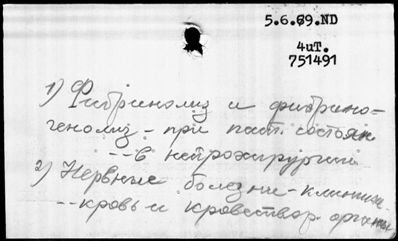 5.6.69.ND
4uT.
751491
1) Фибринолиз и фибрино-
генолиз - при пат. состоян
-- в нейрохирургии
2) Нервные болезни - клиника
-- кровь и кроветвор. органы